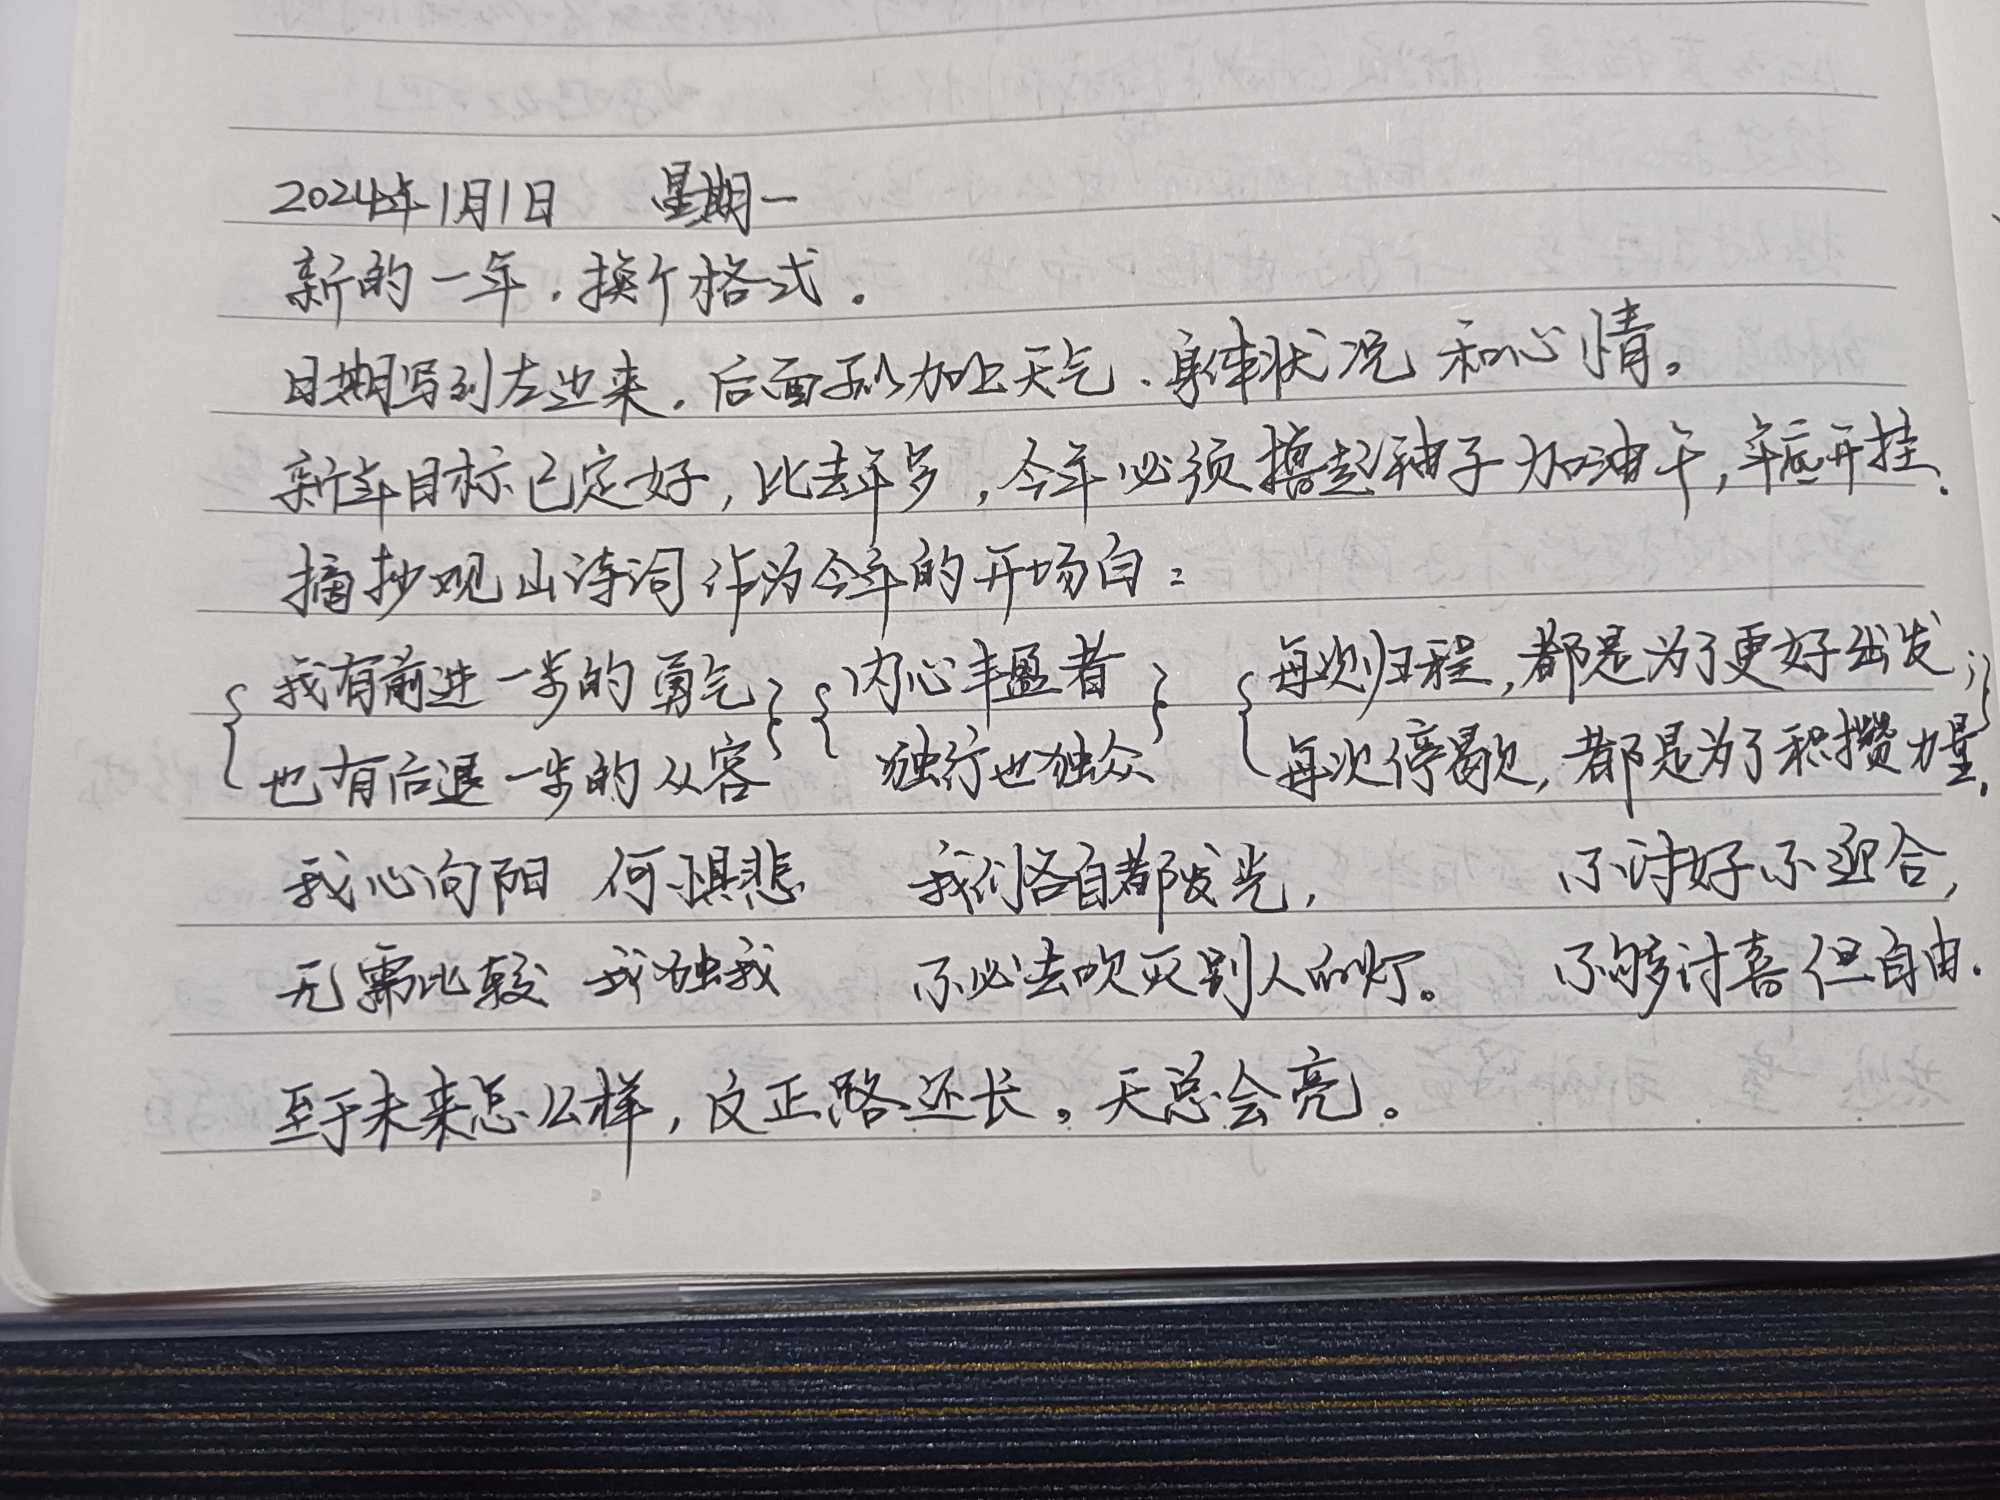 2024年1月1日 星期一
新的一年，换个格式。
日期写到左边来，后面可以加上天气、身体状况和心情。
新年目标已定好，比去年多，今年必须撸起袖子加油干，年底开挂.
摘抄观山诗词作为今年的开场白：
{我有前进一步的勇气} {内心丰盈者} {每次归程，都是为了更好出发；}
{也有后退一步的从容} {独行也独众} {每次停歇，都是为了积攒力量.}
我心向阳 何惧悲 我们各自都发光， 不讨好不迎合，
无需比较 我独我 不必去吹灭别人的灯。 不够讨喜但自由.
至于未来怎么样，反正路还长。天总会亮。